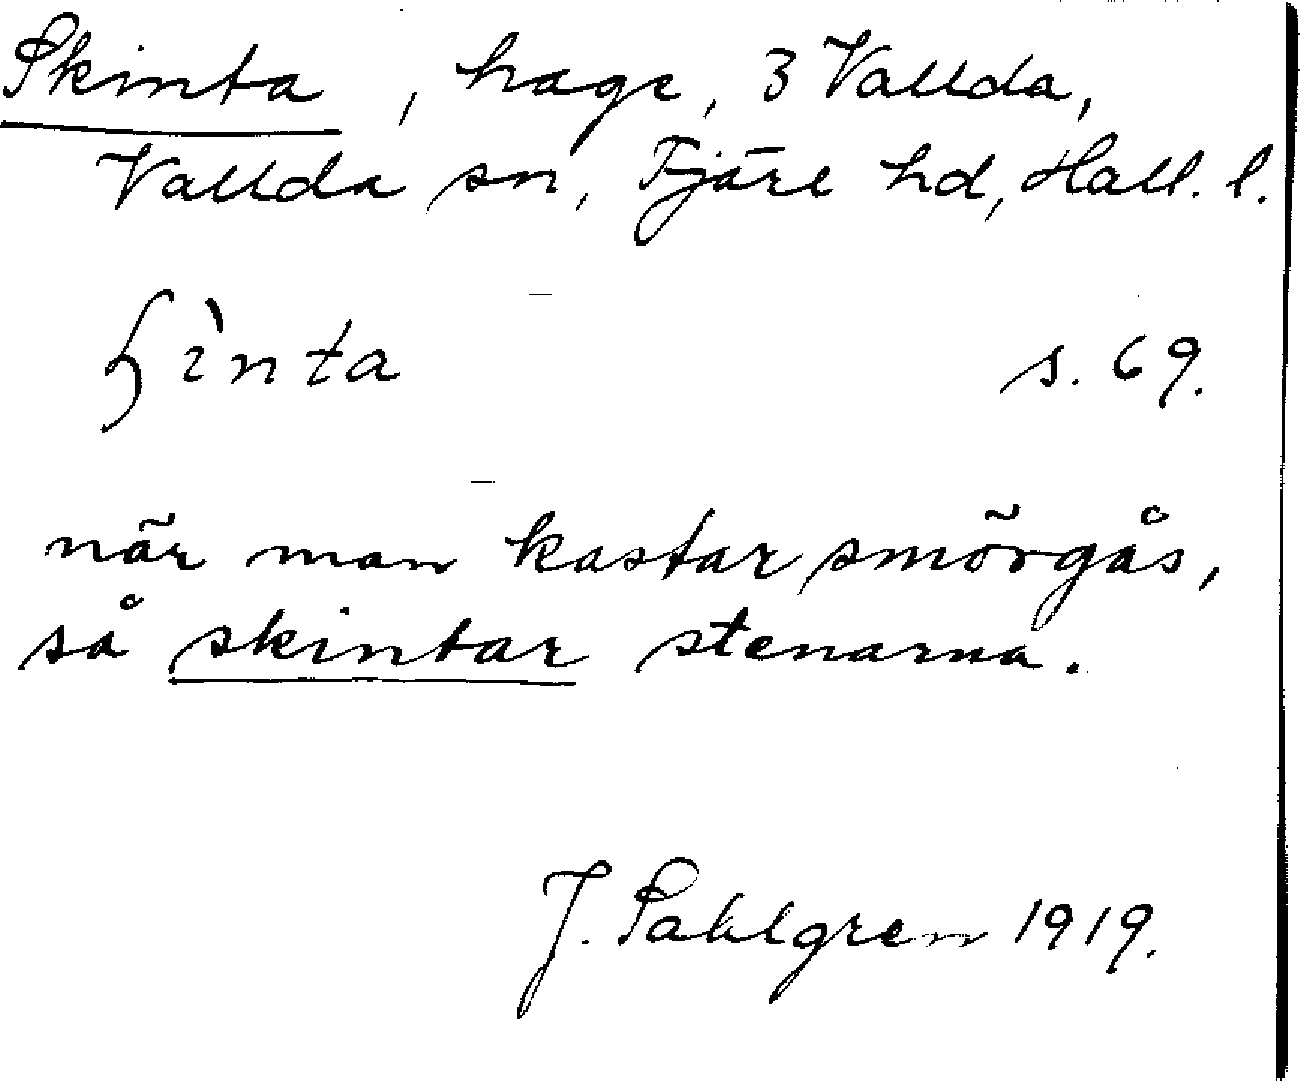 Skinta, hage, 3 Vallda,
Vallda sn, Fjäre hd, Hall. l.
ʃìnta s. 69.
när man kastar smörgås,
så skintar stenarna.
J. Sahlgren 1919.